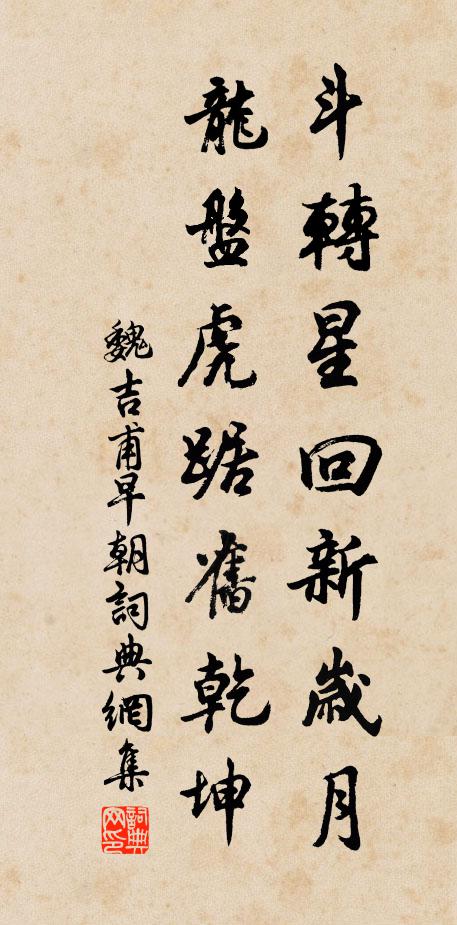 斗轉星回新歲月
龍盤虎踞舊乾坤
魏吉甫早朝詞典網集
詞典網印